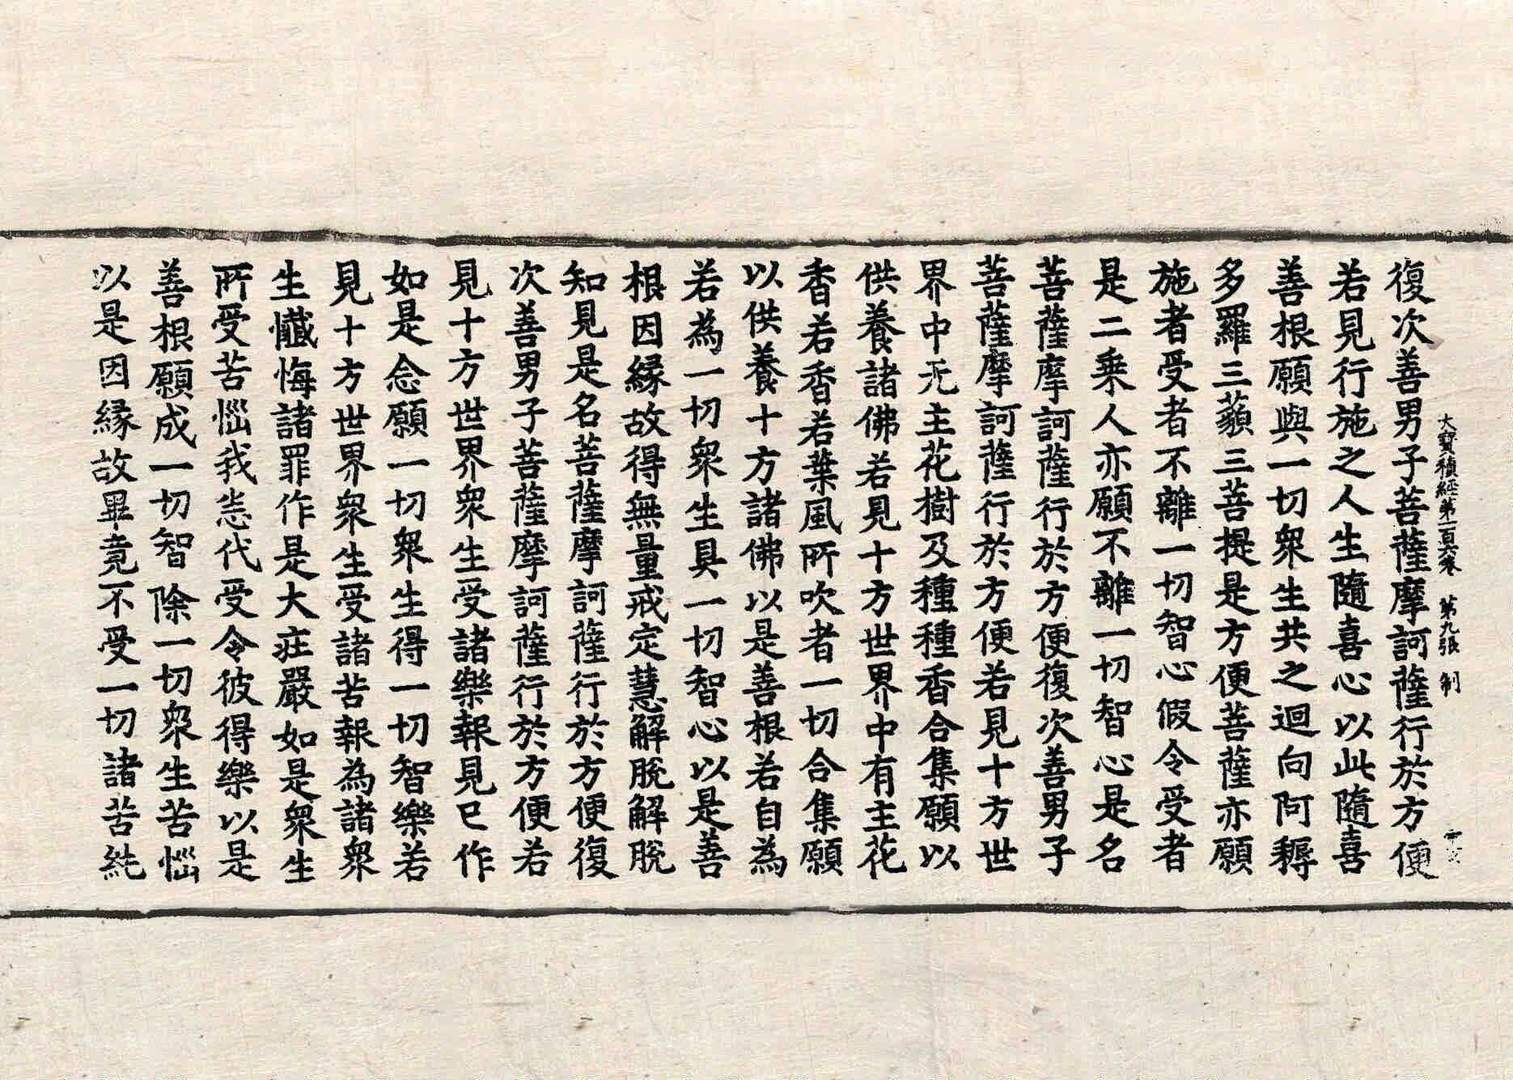 大寶積經第一百六卷 第九張 制
復次善男子菩薩摩訶薩行於方便
若見行施之人生隨喜心以此隨喜
善根願與一切衆生共之迴向阿耨
多羅三藐三菩提是方便菩薩亦願
施者受者不離一切智心假令受者
是二乘人亦願不離一切智心是名
菩薩摩訶薩行於方便復次善男子
菩薩摩訶薩行於方便若見十方世
界中无主花樹及種種香合集願以
供養諸佛若見十方世界中有主花
香若香若葉風所吹者一切合集願
以供養十方諸佛以是善根若自為
若為一切衆生具一切智心以是善
根因縁故得無量戒定慧解脫解脫
知見是名菩薩摩訶薩行於方便復
次善男子菩薩摩訶薩行於方便若
見十方世界衆生受諸樂報見已作
如是念願一切衆生得一切智樂若
見十方世界衆生受諸苦報為諸衆
生懺悔諸罪作是大庄嚴如是衆生
所受苦惱我悉代受令彼得樂以是
善根願成一切智除一切衆生苦惱
以是因縁故畢竟不受一切諸苦純